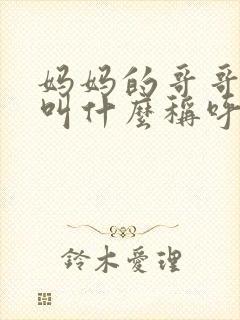 妈妈的哥哥
叫什麼稱呼
鈴木愛理